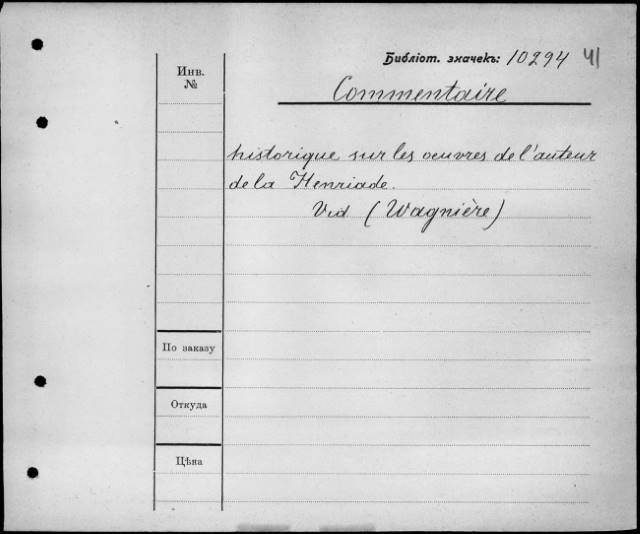 Библіот. значекъ: 10294 41
Инв.
№
Commentaire
historique sur les oeuvres de l'auteur
de la Henriade.
Vid (Wagnière)
По заказу
Откуда
Цѣна